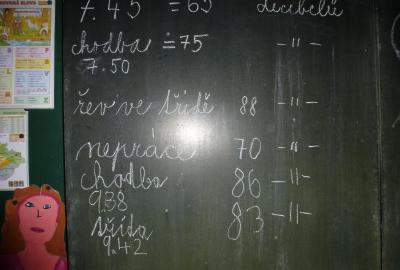 7.45 = 65 decibelů
chodba ≐ 75 -"-
7.50
řev ve třídě 88 -"-
nepráce 70 -"-
chodba 86 -"-
9.38
třída 83 -"-
9.42